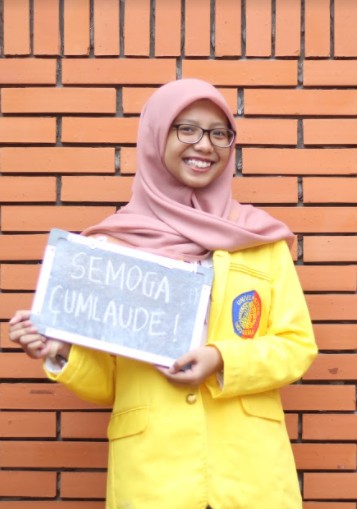 SEMOGA
CUMLAUDE!